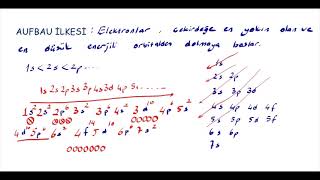 AUFBAU İLKESİ : Elektronlar , çekirdeğe en yakın olan ve
en düşük enerjili orbitalden dolmaya başlar.
1s < 2s < 2p ......
1s 2s 2p 3s 3p 4s 3d 4p 5s .....
1s² 2s² 2p⁶ 3s² 3p⁶ 4s² 3d¹⁰ 4p⁶ 5s²
4d¹⁰ 5p⁶ 6s² 4f¹⁴ 5d¹⁰ 6p⁶ 7s²
1s
2s 2p
3s 3p 3d
4s 4p 4d 4f
5s 5p 5d 5f
6s 6p
7s